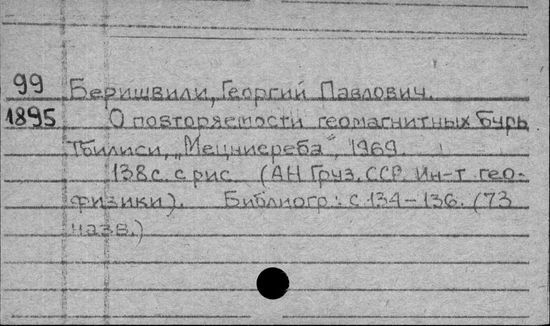 99 Беришвили, Георгий Павлович.
1895 О повторяемости геомагнитных бурь
Тбилиси, „Мецниереба", 1969.
138с. с рис. (АН Груз. ССР. Ин-т гео-
физики). Библиогр.: с 134-136. (73
назв.)